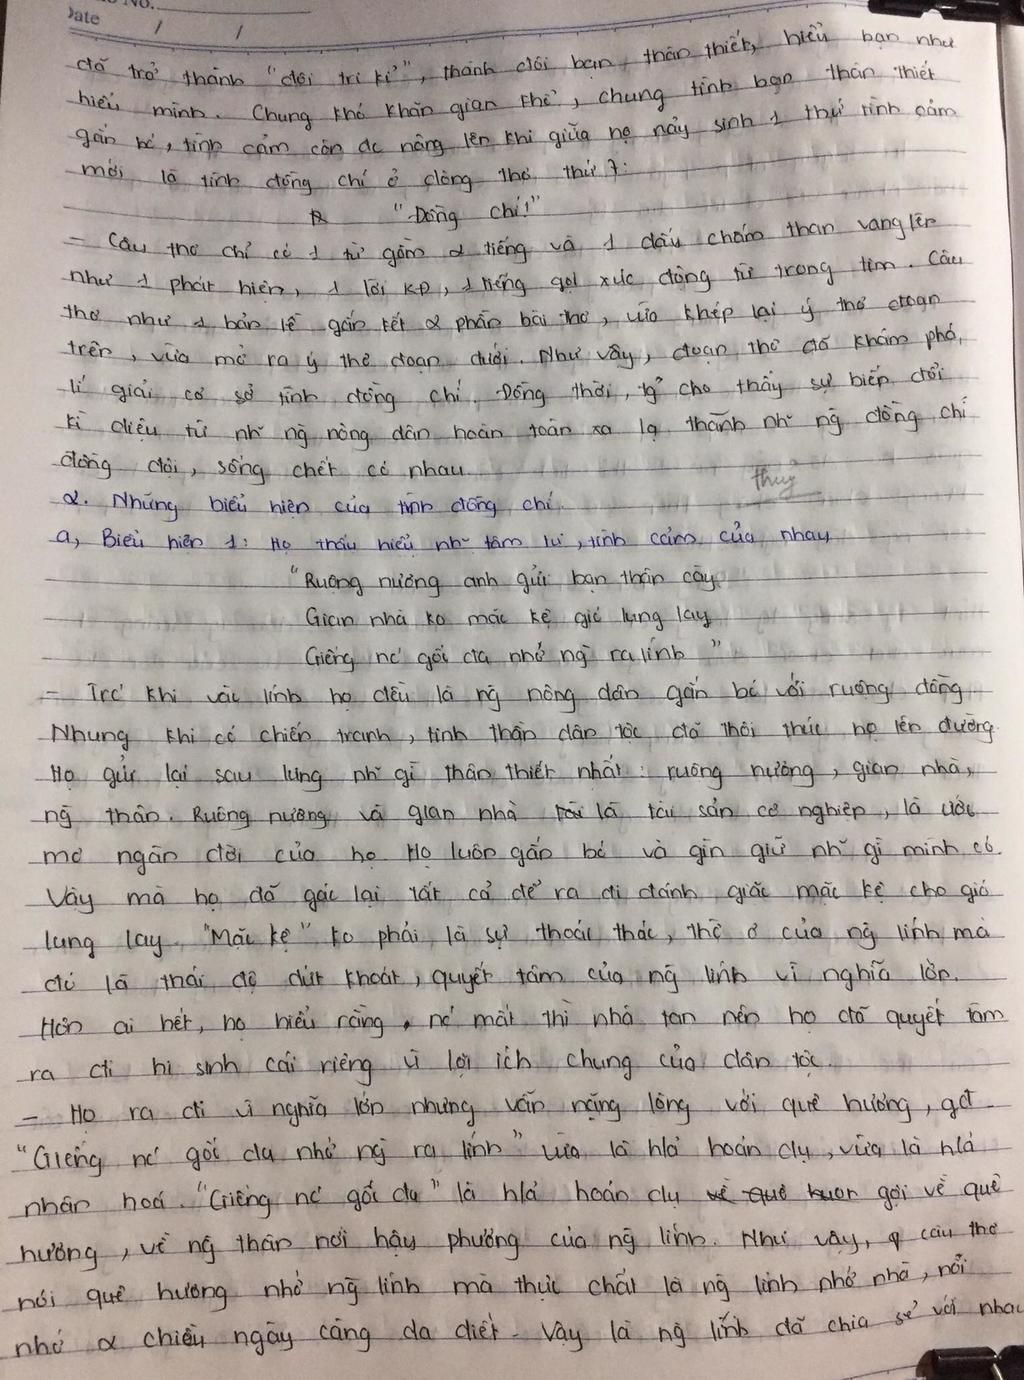 Date / /
đã trở thành "đôi tri kỉ", thành đôi bạn thân thiết, hiểu bạn như
hiểu mình. Chung khó khăn gian khổ, chung tình bạn thân thiết
gắn bó, tình cảm còn đc nâng lên khi giữa họ nảy sinh 1 thứ tình cảm
mới là tình đồng chí ở dòng thơ thứ 7:
"Đồng chí!"
- Câu thơ chỉ có 1 từ gồm 2 tiếng và 1 dấu chấm than vang lên
như 1 phát hiện, 1 lời kđ, 1 tiếng gọi xúc động từ trong tim. Câu
thơ như 1 bản lề gắn kết 2 phần bài thơ, vừa khép lại ý thơ đoạn
trên, vừa mở ra ý thơ đoạn dưới. Như vậy, đoạn thơ đã khám phá,
lí giải cơ sở tình đồng chí. Đồng thời, tg cho thấy sự biến đổi
kì diệu từ nh~ ng~ nông dân hoàn toàn xa lạ thành nh~ ng~ đồng chí
đồng đội, sống chết có nhau.
thuỷ
2. Những biểu hiện của tình đồng chí.
a, Biểu hiện 1: Họ thấu hiểu nh~ tâm tư, tình cảm của nhau
"Ruộng nương anh gửi bạn thân cày
Gian nhà ko mặc kệ gió lung lay
Giếng nc' gốc đa nhớ ng~ ra lính"
- Trc' khi vào lính họ đều là ng~ nông dân gắn bó với ruộng đồng
Nhưng khi có chiến tranh, tinh thần dân tộc đã thôi thúc họ lên đường.
Họ gửi lại sau lưng nh~ gì thân thiết nhất: ruộng nương, gian nhà,
ng~ thân. Ruộng nương và gian nhà là tài sản cơ nghiệp, là ước
mơ ngàn đời của họ. Họ luôn gắn bó và gìn giữ nh~ gì mình có.
Vậy mà họ đã gác lại tất cả để ra đi đánh giặc mặc kệ cho gió
lung lay. "Mặc kệ" ko phải là sự thoái thác, thờ ơ của ng~ lính mà
đó là thái độ dứt khoát, quyết tâm của ng~ lính vì nghĩa lớn.
Hơn ai hết, họ hiểu rằng, nc' mất thì nhà tan nên họ đã quyết tâm
ra đi hi sinh cái riêng vì lợi ích chung của dân tộc.
- Họ ra đi vì nghĩa lớn nhưng vẫn nặng lòng với quê hương, gđ.
"Giếng nc' gốc đa nhớ ng~ ra lính" vừa là h/ả hoán dụ, vừa là h/ả
nhân hoá. "Giếng nc' gốc đa" là h/ả hoán dụ gợi về quê
hương, về ng~ thân nơi hậu phương của ng~ lính. Như vậy, câu thơ
nói quê hương nhớ ng~ lính mà thực chất là ng~ lính nhớ nhà, nỗi
nhớ 2 chiều ngày càng da diết. Vậy là ng~ lính đã chia sẻ với nhau